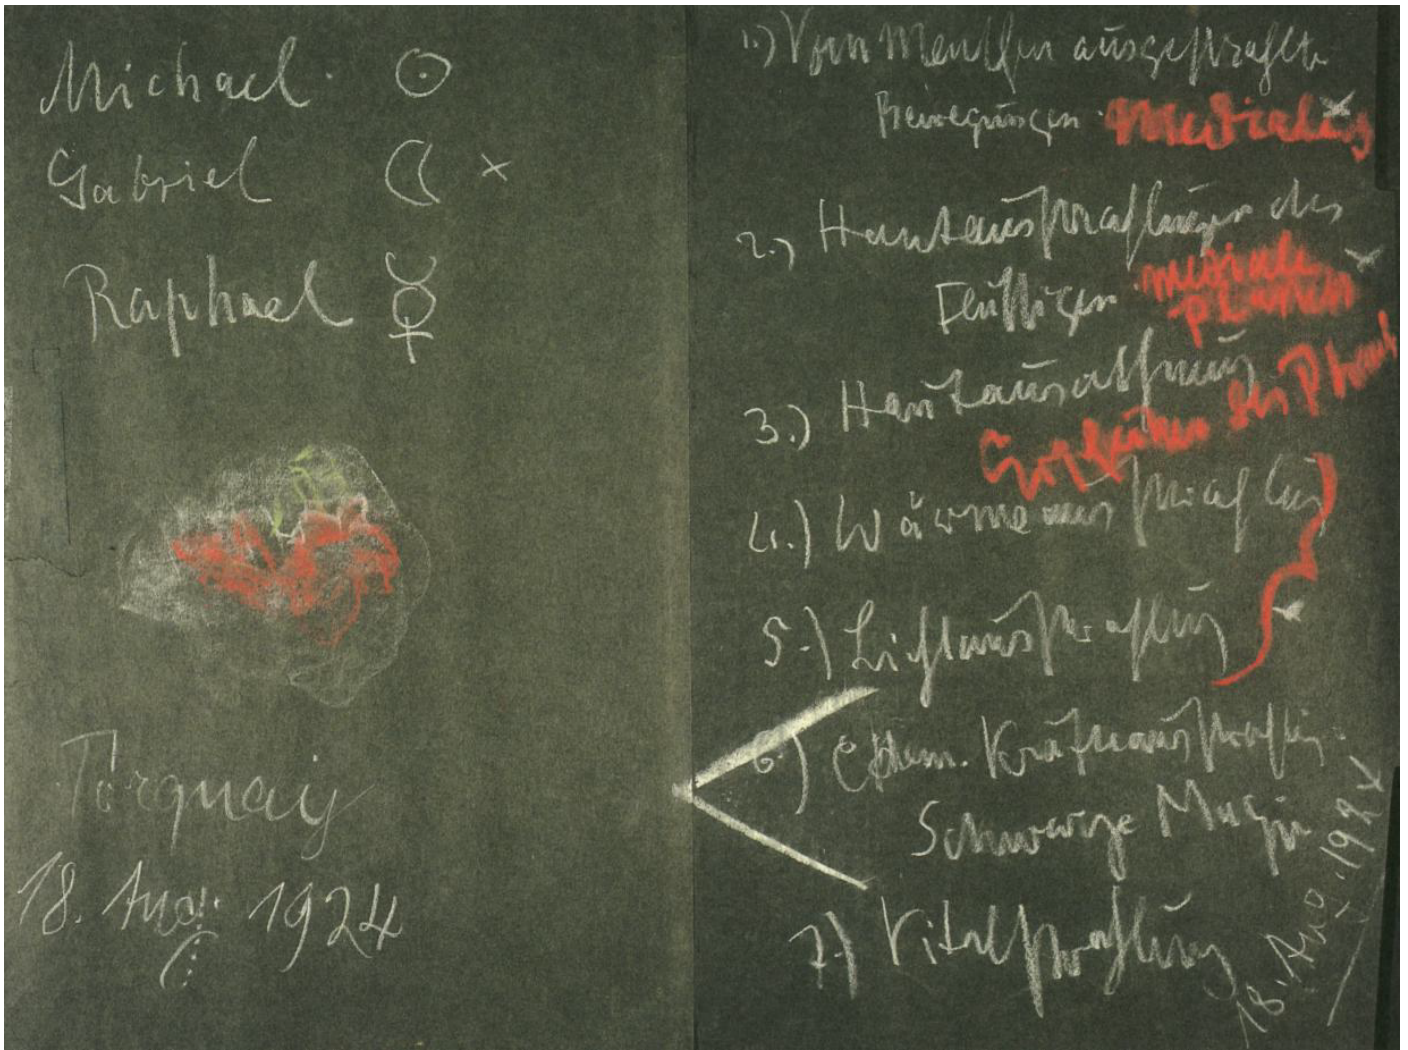 Michael ☉
Gabriel ☾ ×
Raphael ☿
Torquay
18. Aug. 1924
1.) Vom Menschen ausgestrahlte
Bewegungen. Medialität
2.) Hautausstrahlungen des
Flüssigen. mediale
Phanen
3.) Hautausatmung
des Phant
4.) Wärmeausstrahlung
5.) Lichtausstrahlung
6.) Chem. Kräfteausstrahlung.
Schwarze Magie
7.) Vitalstrahlung
18. Aug. 1924